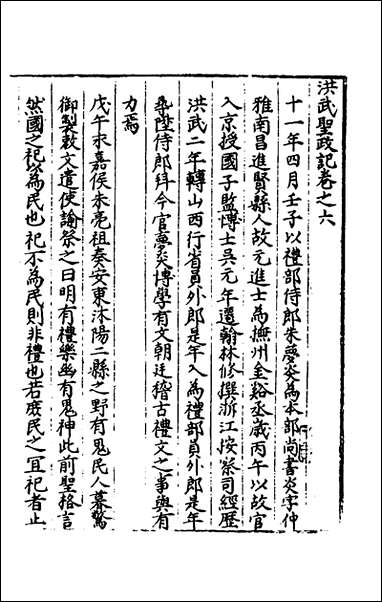 洪武聖政記卷之六
十一年四月壬子以禮部侍郎朱夢炎為本部尚書炎字仲
雅南昌進賢縣人故元進士為撫州金谿丞歲丙午以故官
入京授國子監博士吳元年遷翰林修撰浙江按察司經歷
洪武二年轉山西行省員外郎是年入為禮部員外郎是年
陞侍郎拜今官夢炎博學有文朝廷稽古禮文之事與有
力焉
戊午求嘉侯朱亮祖奏安東沭陽二縣之野有鬼民人暮驚
御製敕文遣使諭祭之曰明有禮樂幽有鬼神此前聖格言
然國之祀以為民也祀不為民則非禮也若庶民之宜祀者止